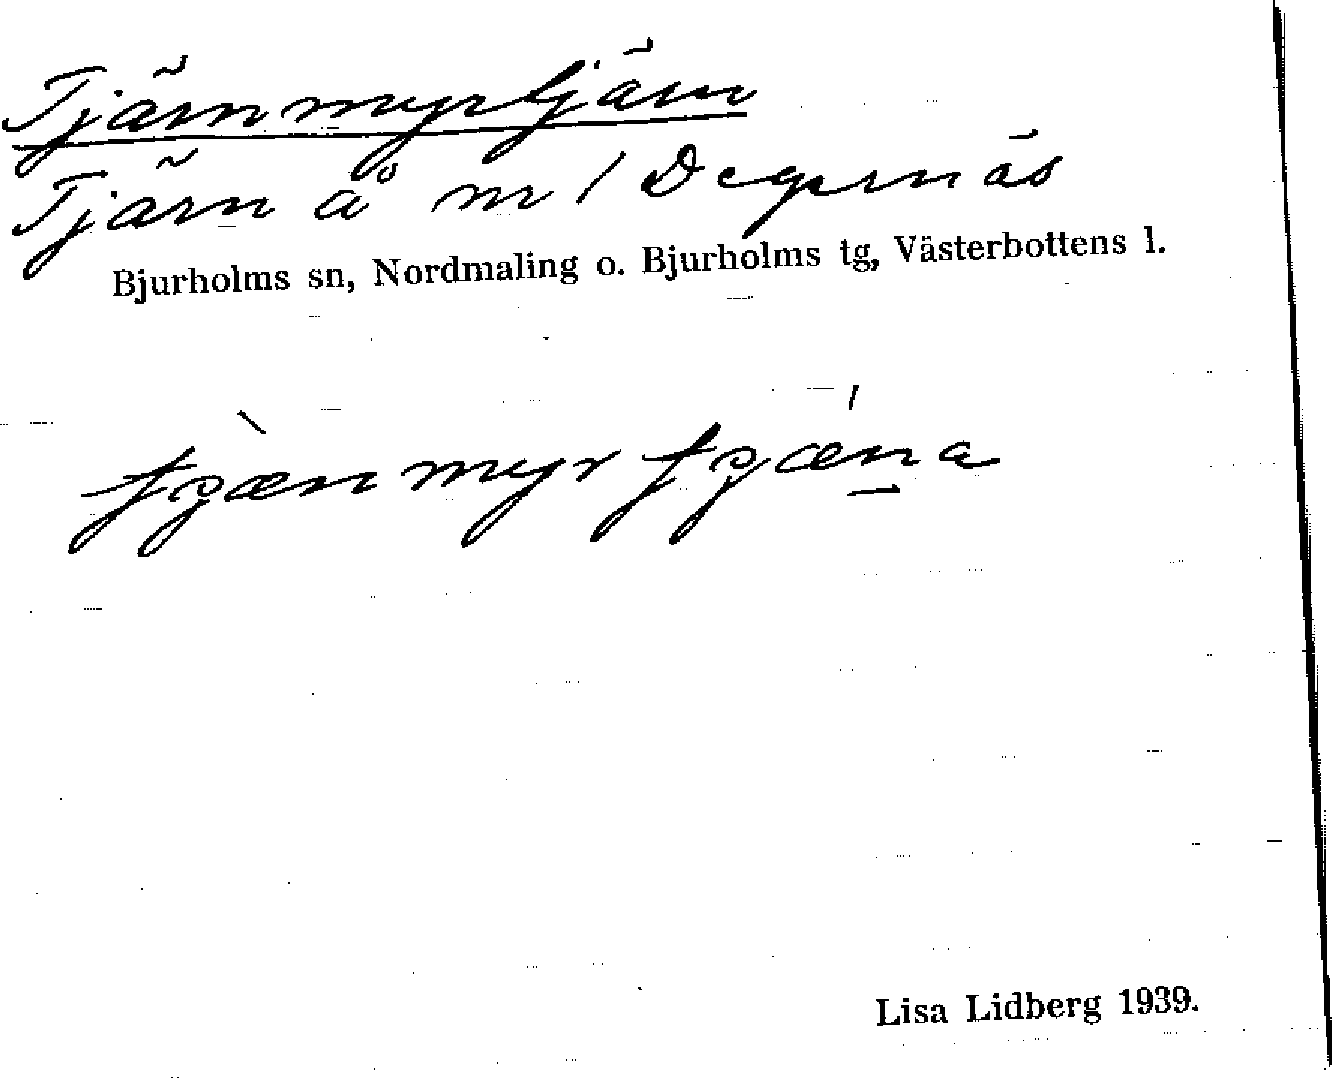 Tjärnmyrtjärn
Tjärn å nr 1 Degernäs
Bjurholms sn, Nordmaling o. Bjurholms tg, Västerbottens l.
Lisa Lidberg 1939.